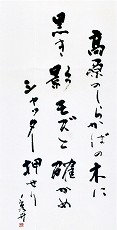 高原のしらかばの木に
黒き影モズと確かめ
シャッター押せり